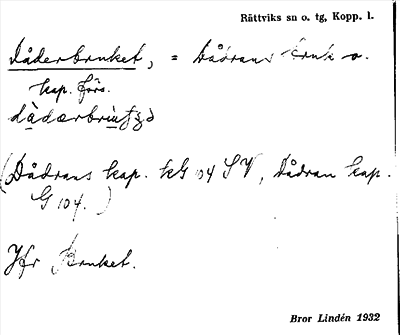 Rättviks sn o. tg, Kopp. l.
Dåderbruket, = Dådrans bruk o.
kap. förs.
(Dådrans kap. kG 104 SV, Dådran kap.
G 104.)
Jfr Bruket.
Bror Lindén 1932